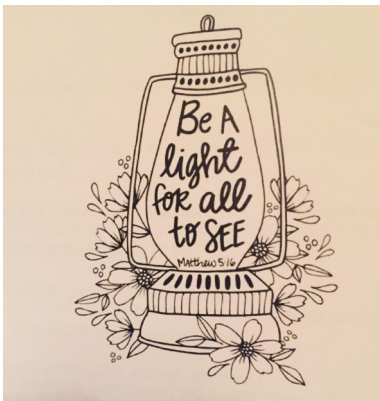 Be A
light
for all
to SEE
Matthew 5:16